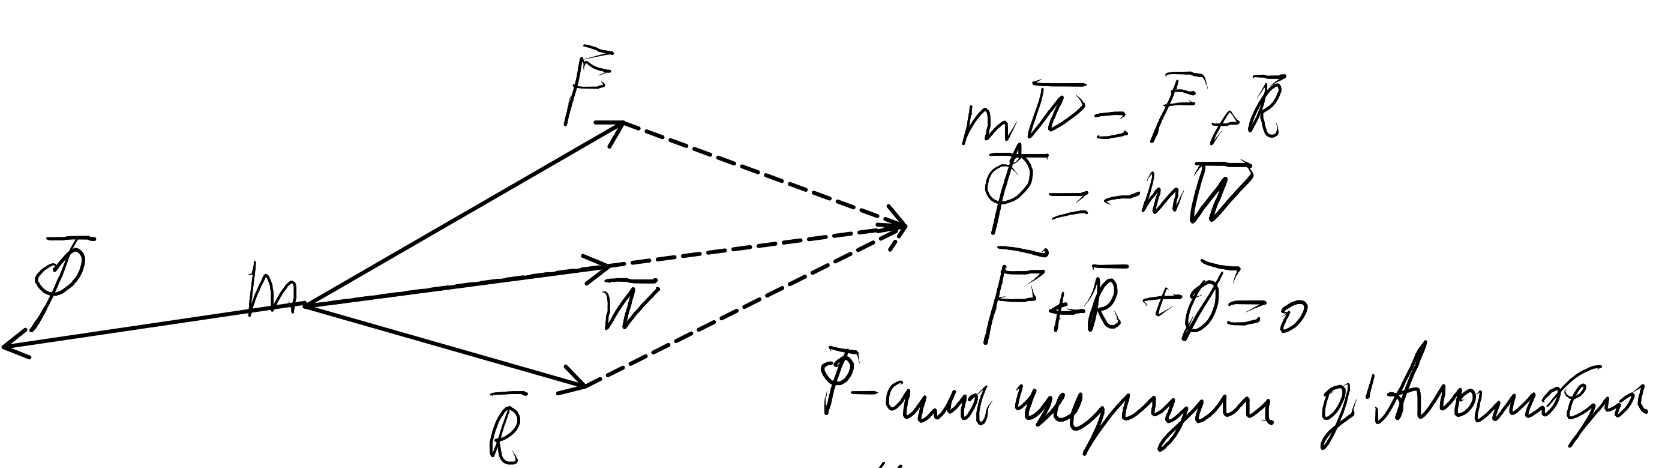 F̅
mW̅ = F̅ + R̅
Φ̅ = -mW̅
Φ̅
m
W̅
F̅ + R̅ + Φ̅ = 0
R̅
Φ̅ - сила инерции д'Аламбера